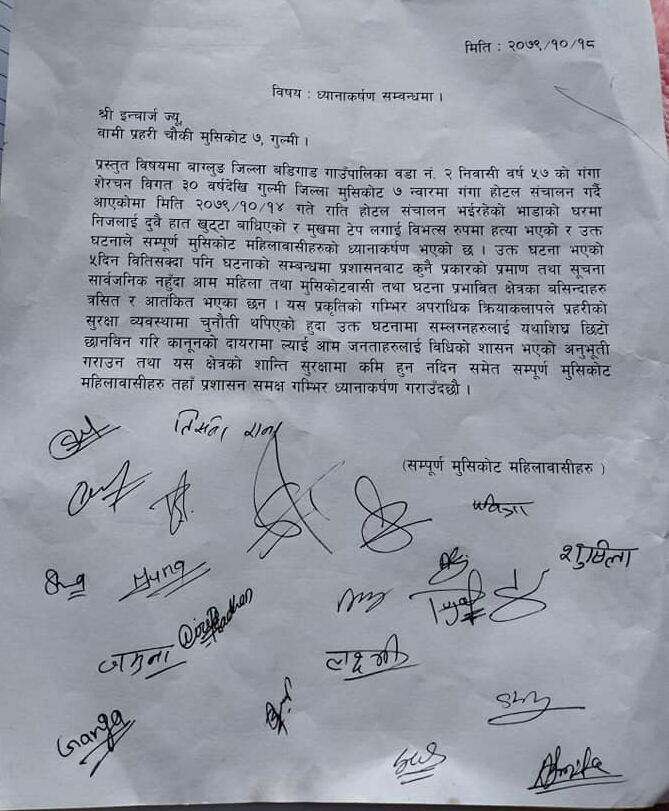 मिति : २०७९/१०/१८
विषय : ध्यानाकर्षण सम्बन्धमा ।
श्री इन्चार्ज ज्यू,
वामी प्रहरी चौकी मुसिकोट ७, गुल्मी ।
प्रस्तुत विषयमा बाग्लुङ जिल्ला बडिगाड गाउँपालिका वडा नं. २ निवासी वर्ष ५७ को गंगा
शेरचन विगत ३० वर्षदेखि गुल्मी जिल्ला मुसिकोट ७ न्वारमा गंगा होटल संचालन गर्दै
आएकोमा मिति २०७९/१०/१४ गते राति होटल संचालन भईरहेको भाडाको घरमा
निजलाई दुवै हात खुट्टा बाधिएको र मुखमा टेप लगाई विभत्स रुपमा हत्या भएको र उक्त
घटनाले सम्पूर्ण मुसिकोट महिलावासीहरुको ध्यानाकर्षण भएको छ । उक्त घटना भएको
५दिन वितिसक्दा पनि घटनाको सम्बन्धमा प्रशासनबाट कुनै प्रकारको प्रमाण तथा सूचना
सार्वजनिक नहुँदा आम महिला तथा मुसिकोटवासी तथा घटना प्रभावित क्षेत्रका बसिन्दाहरु
त्रसित र आतंकित भएका छन । यस प्रकृतिको गम्भिर अपराधिक क्रियाकलापले प्रहरीको
सुरक्षा व्यवस्थामा चुनौती थपिएको हुदा उक्त घटनामा सम्लग्नहरुलाई यथाशिघ्र छिटो
छानविन गरि कानूनको दायरामा ल्याई आम जनताहरुलाई विधिको शासन भएको अनुभूती
गराउन तथा यस क्षेत्रको शान्ति सुरक्षामा कमि हुन नदिन समेत सम्पूर्ण मुसिकोट
महिलावासीहरु तहाँ प्रशासन समक्ष गम्भिर ध्यानाकर्षण गराउँदछौ ।
(सम्पूर्ण मुसिकोट महिलावासीहरु )
जमुना
लक्ष्मी